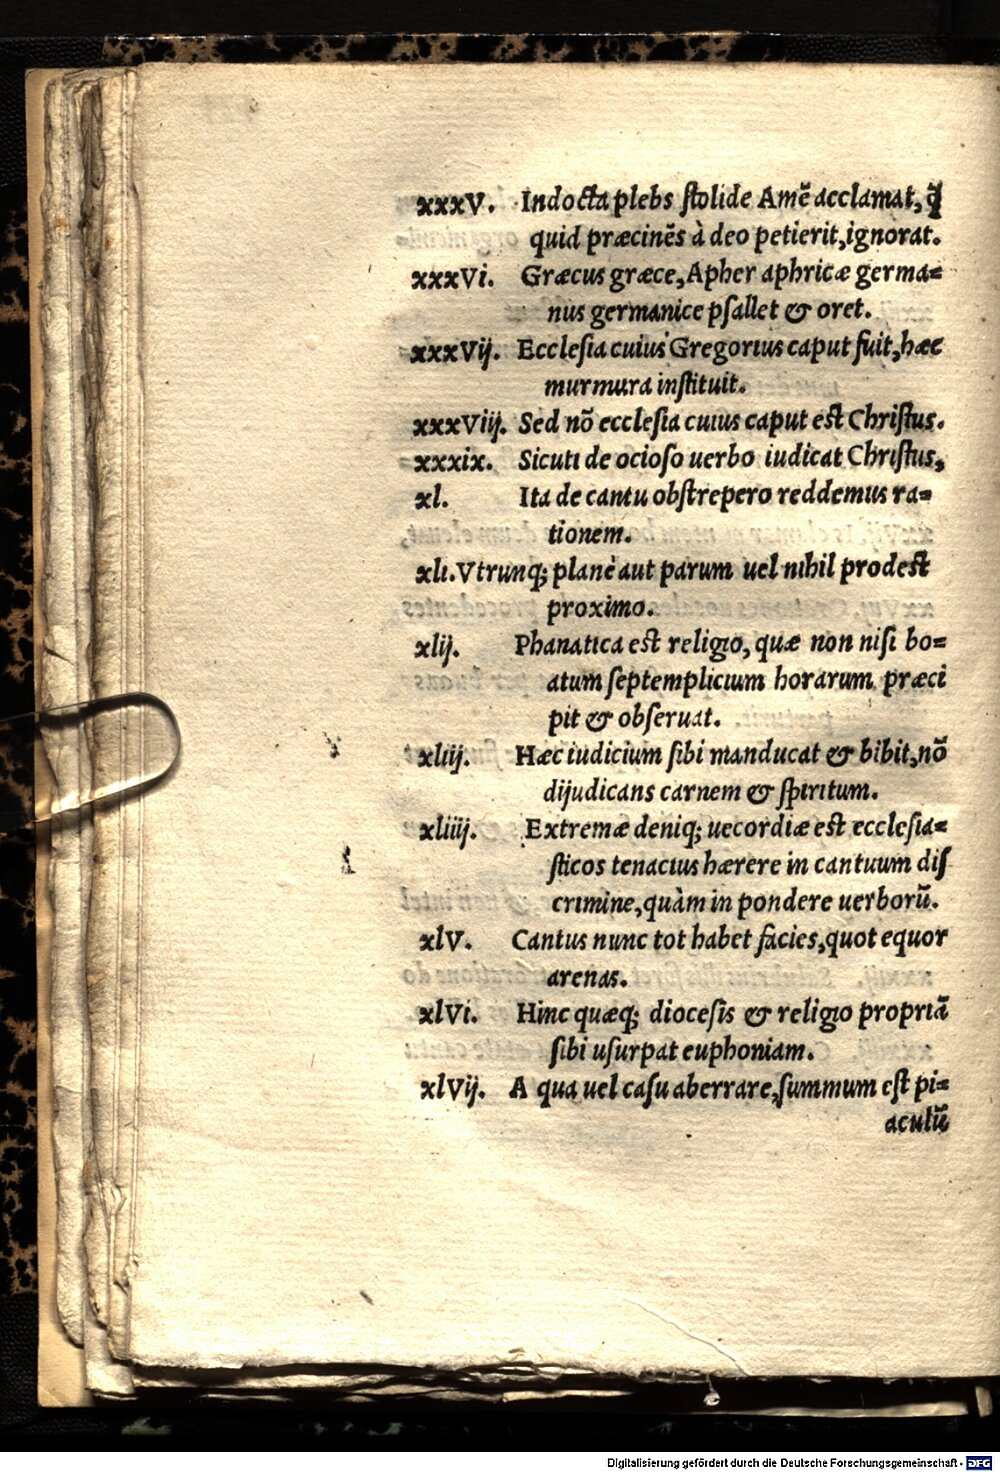 xxxV. Indocta plebs stolide Amẽ acclamat, q̃
quid præcinẽs à deo petierit, ignorat.
xxxVi. Græcus græce, Apher aphricæ germa=
nus germanice psallet & oret.
xxxVij. Ecclesia cuius Gregorius caput fuit, hæc
murmura instituit.
xxxViij. Sed nõ ecclesia cuius caput est Christus.
xxxix. Sicuti de ocioso uerbo iudicat Christus,
xl. Ita de cantu obstrepero reddemus ra=
tionem.
xli. Vtrunq; planè aut parum uel nihil prodest
proximo.
xlij. Phanatica est religio, quæ non nisi bo=
atum septemplicium horarum præci
pit & obseruat.
xliij. Hæc iudicium sibi manducat & bibit, nõ
dijudicans carnem & spiritum.
xliiij. Extremæ deniq; uecordiæ est ecclesia=
sticos tenacius hærere in cantuum dis
crimine, quàm in pondere uerborũ.
xlV. Cantus nunc tot habet facies, quot equor
arenas.
xlVi. Hinc quæq; diocesis & religio propriã
sibi usurpat euphoniam.
xlVij. A qua uel casu aberrare, summum est pi=
aculũ
Digitalisierung gefördert durch die Deutsche Forschungsgemeinschaft - DFG